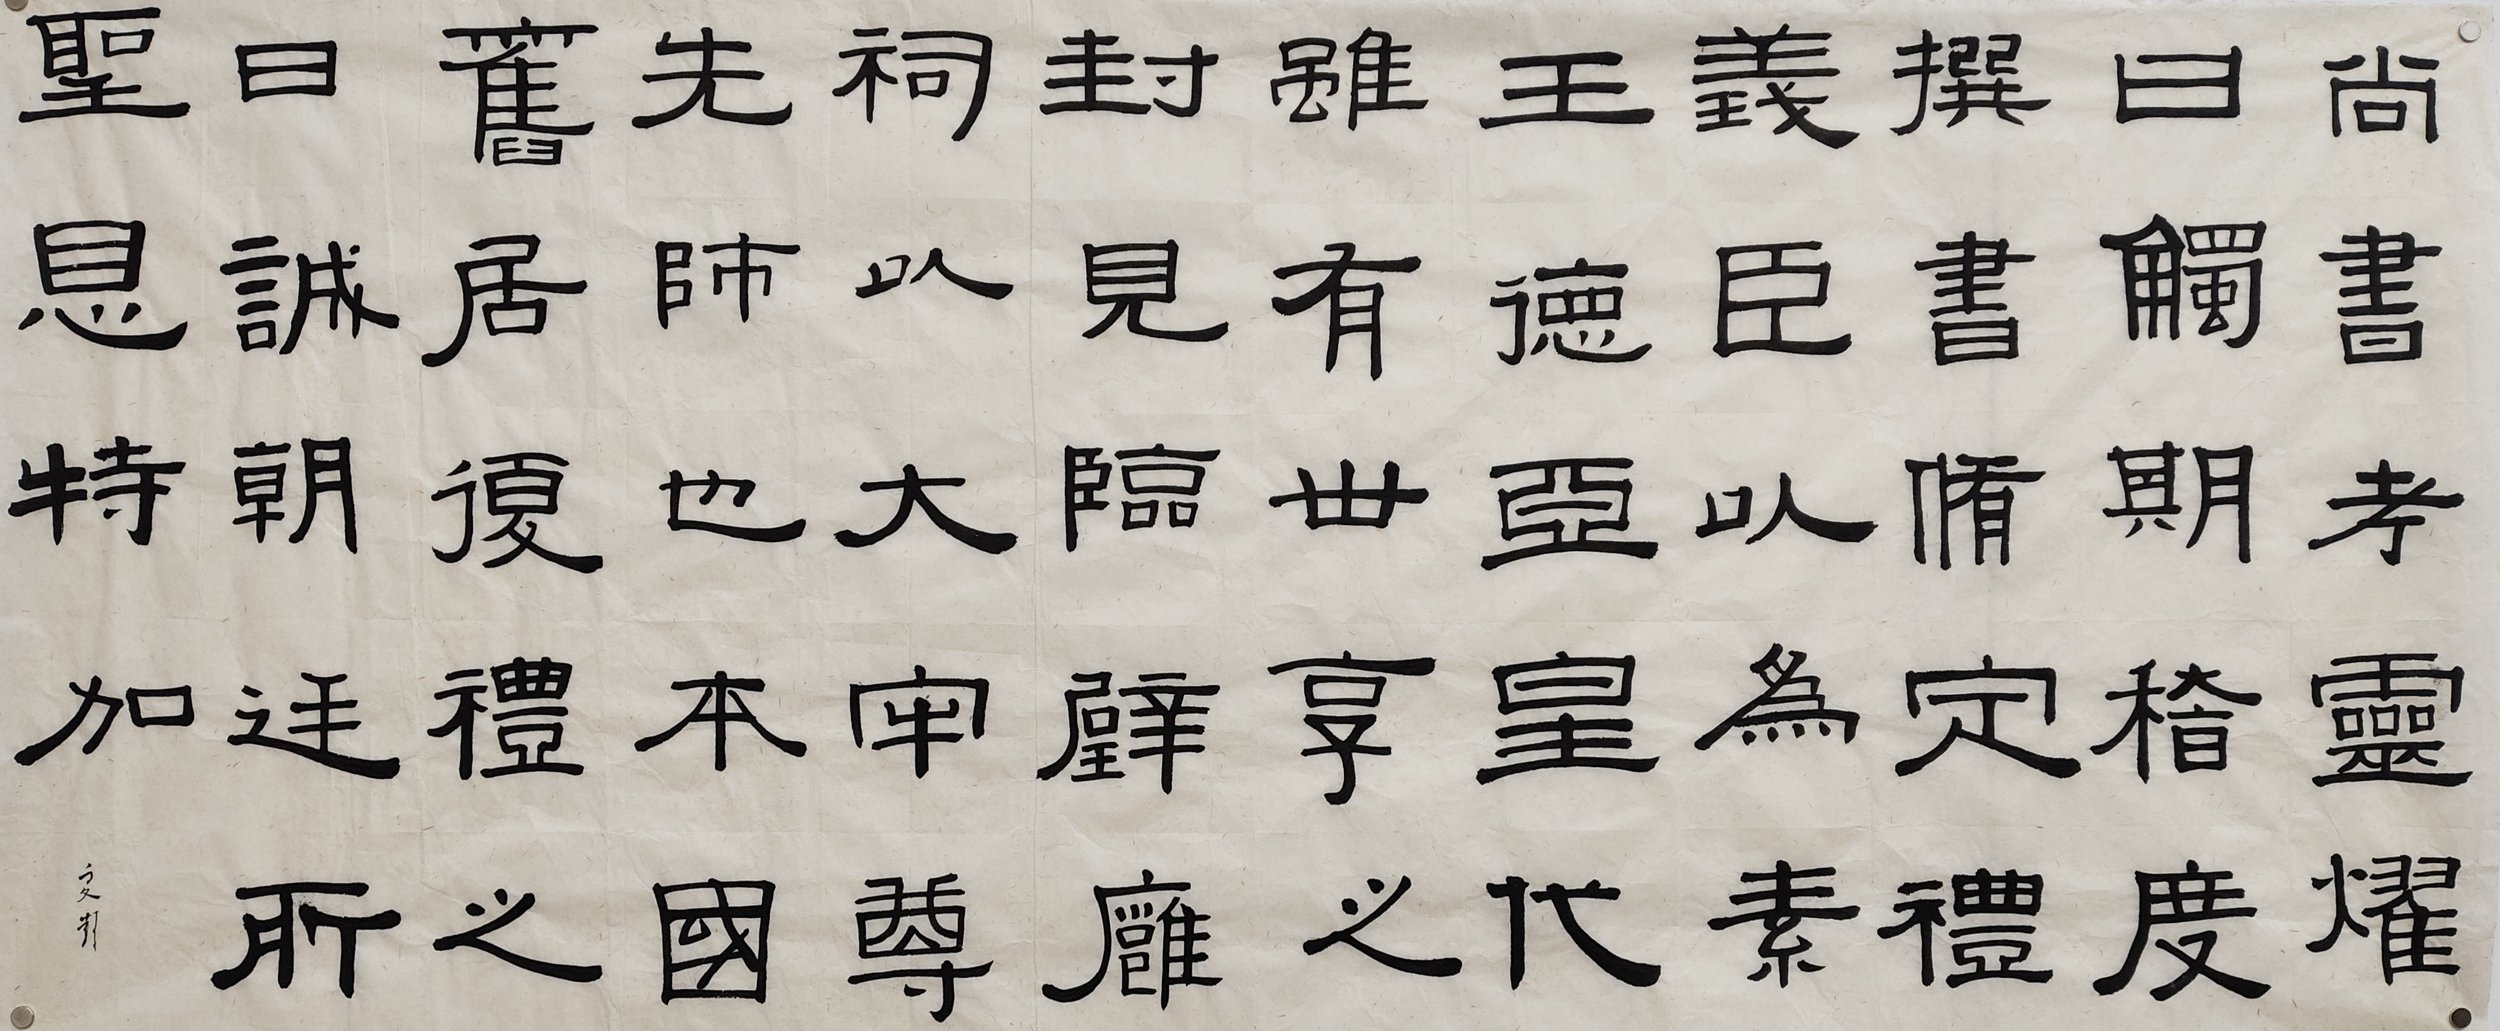 尚書考靈燿
曰觸期稽度
撰書脩定禮
義臣以為素
王德亞皇代
雖有世享之
封見臨璧廱
祠以大牢尊
先師也本國
舊居復禮之
日誠朝廷所
聖恩特加